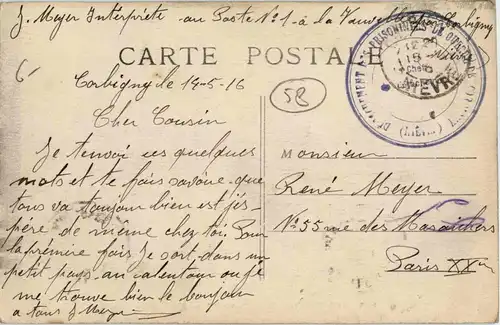 J. Meyer Interprète au Poste No 1 à la Vauvelle Corbigny
CARTE POSTALE
DÉTACHEMENT DES PRISONNIERS DE GUERRE
(NIÈVRE)
NIEVRE
6
58
Corbigny le 14-5-16
Cher Cousin
Je t'envoi ces quelques
mots et te fais savoire que
tous va toujour bien est j'es-
père de même chez toi. Pour
la prémire fois je sort, dans un
petit pays au alentour ou je
me trouve bien le bonjour
a tous J Meyer
Monsieur
René Meyer
No 55 rue des Maraichers
Paris XXm